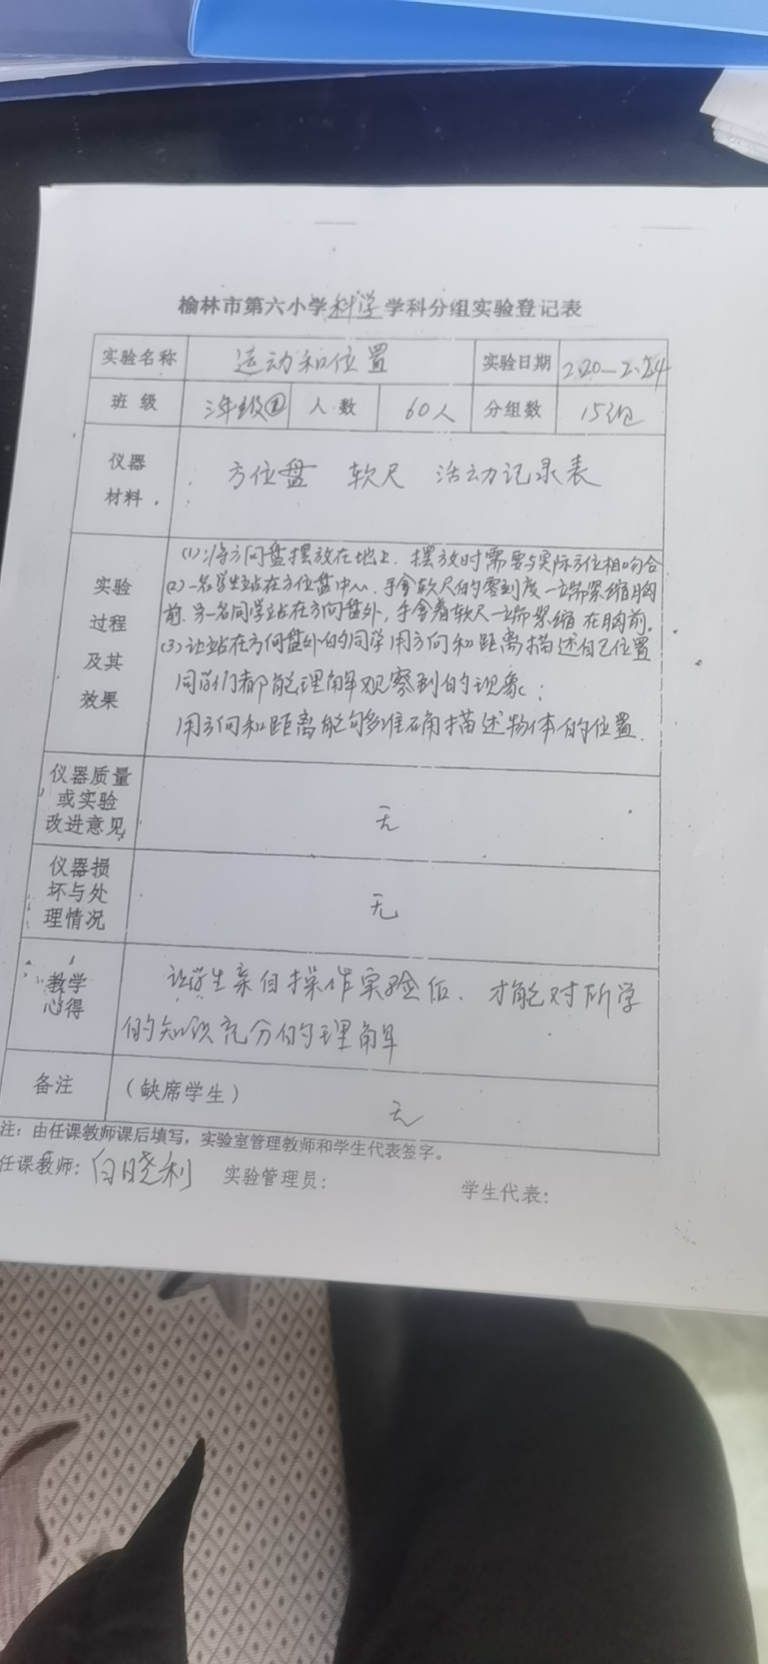 榆林市第六小学科学学科分组实验登记表
实验名称 运动和位置 实验日期 2.20-2.24
班级 三年级② 人数 60人 分组数 15组
仪器材料 方位盘 软尺 活动记录表
实验过程及其效果
(1)将方向盘摆放在地上.摆放时需要与实际方位相吻合
(2)一名学生站在方位盘中心.手拿软尺的零刻度一端紧缩胸
前.另一名同学站在方向盘外,手拿着软尺一端紧缩在胸前.
(3)让站在方向盘外的同学用方向和距离描述自己位置
同学们都能理解观察到的现象:
用方向和距离能够准确描述物体的位置.
仪器质量或实验改进意见 无
仪器损坏与处理情况 无
教学心得 让学生亲自操作实验后.才能对所学
的知识充分的理解
备注 (缺席学生) 无
注:由任课教师课后填写,实验室管理教师和学生代表签字。
任课教师:白晓利 实验管理员: 学生代表: